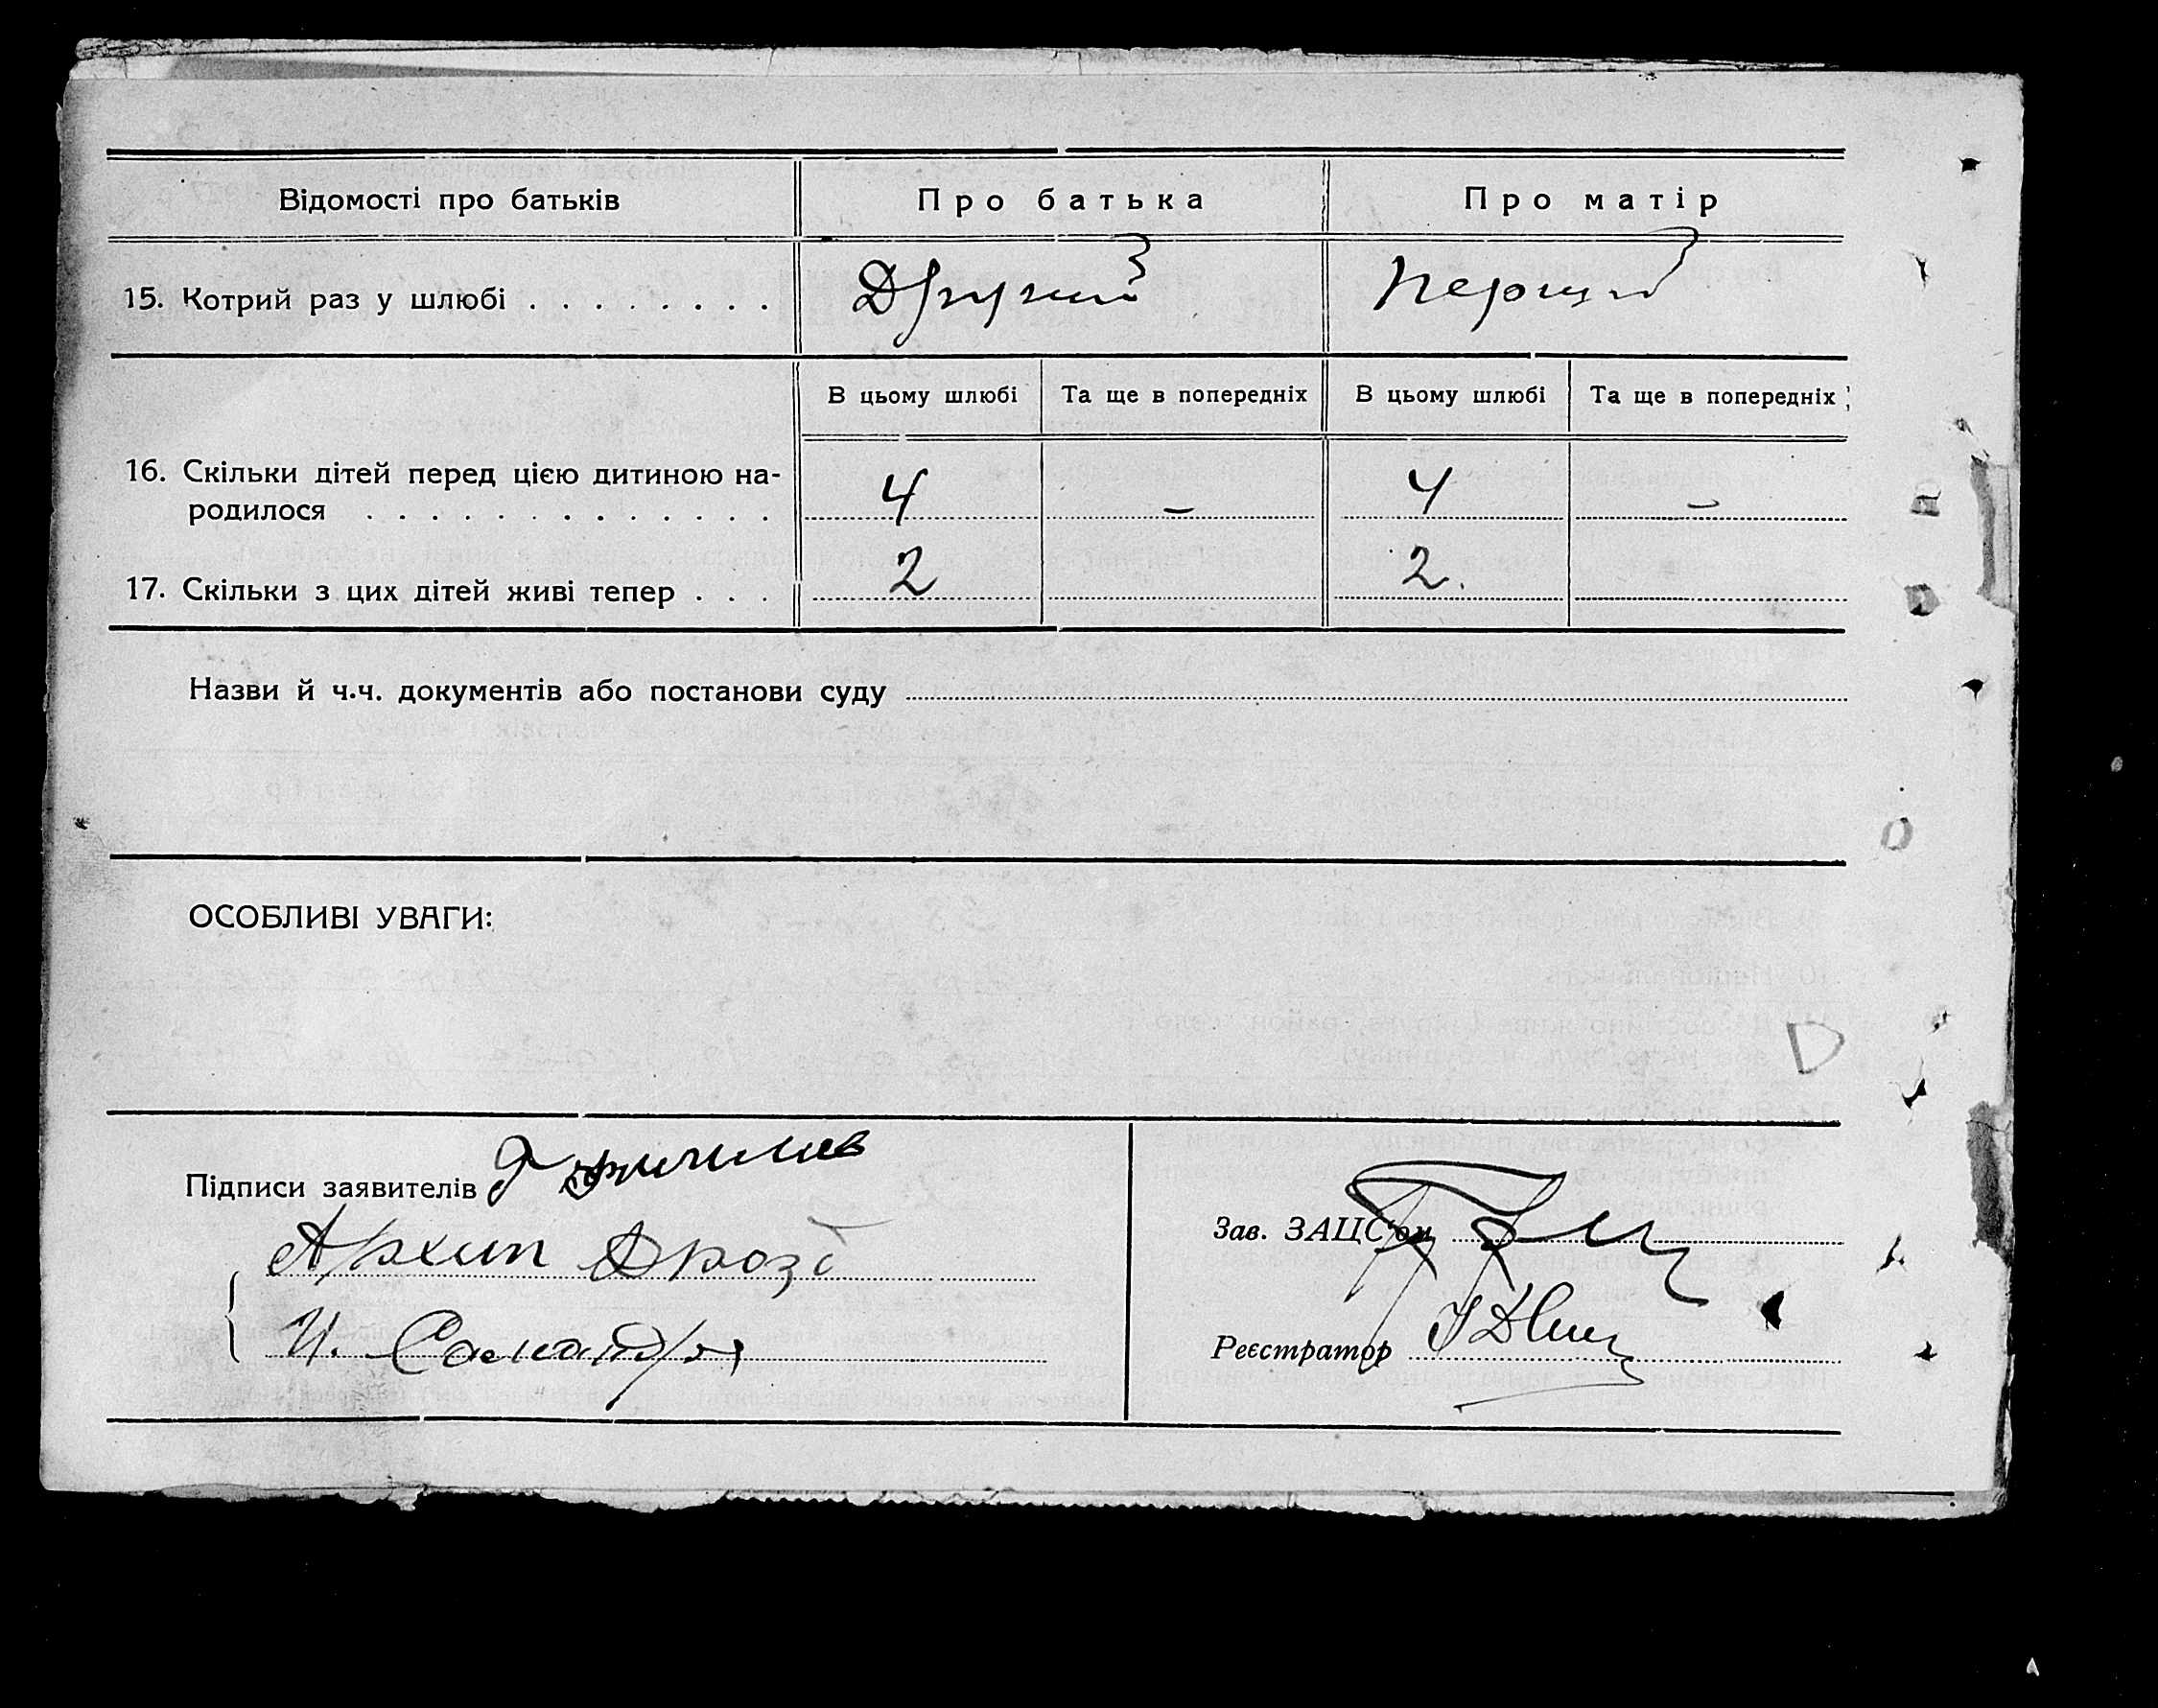 Відомості про батьків Про батька Про матір
15. Котрий раз у шлюбі . . . . . . . . Другий Перший
В цьому шлюбі Та ще в попередніх В цьому шлюбі Та ще в попередніх
16. Скільки дітей перед цією дитиною на-
родилося . . . . . . . . . . . . . 4 – 4 –
17. Скільки з цих дітей живі тепер . . . 2 2.
Назви й ч.ч. документів або постанови суду
ОСОБЛИВІ УВАГИ:
Підписи заявителів
Архип Дрозд
И.
Зав. ЗАЦС'ом
Реєстратор